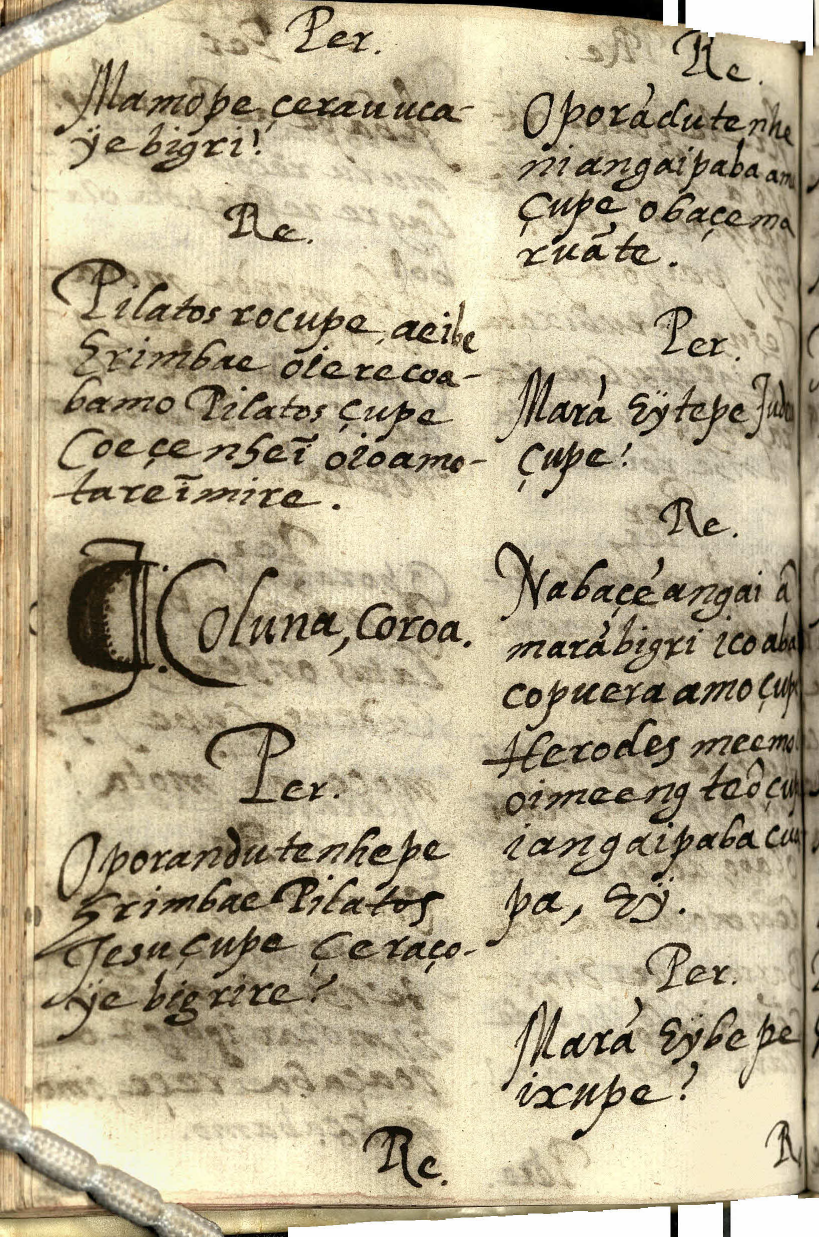 Per.
Mamope çerauuca-
ÿe bigri?
Re.
Pilatos rocupe, aeibe
Erimbae oierecoa-
bamo Pilatos çupe
Coeçenheĩ oioamo-
tareĩmire.
Coluna, Coroa.
Per.
Oporandutenhepe
Erimbae Pilatos
Jesu çupe Çeraço-
ÿe bigrire?
Re.
Re.
Oporãdutenhe
niangaipaba
Çupe obaçema
ruãte.
Per.
Marã Eÿtepe
çupe?
Re.
Nabaçé angai ã
marãbigri ico aba
copuera amo çupe
Herodes
oimeeng teõ
iangaipaba
pa, Eÿ.
Per.
Marã Eÿbepe
ixupe?